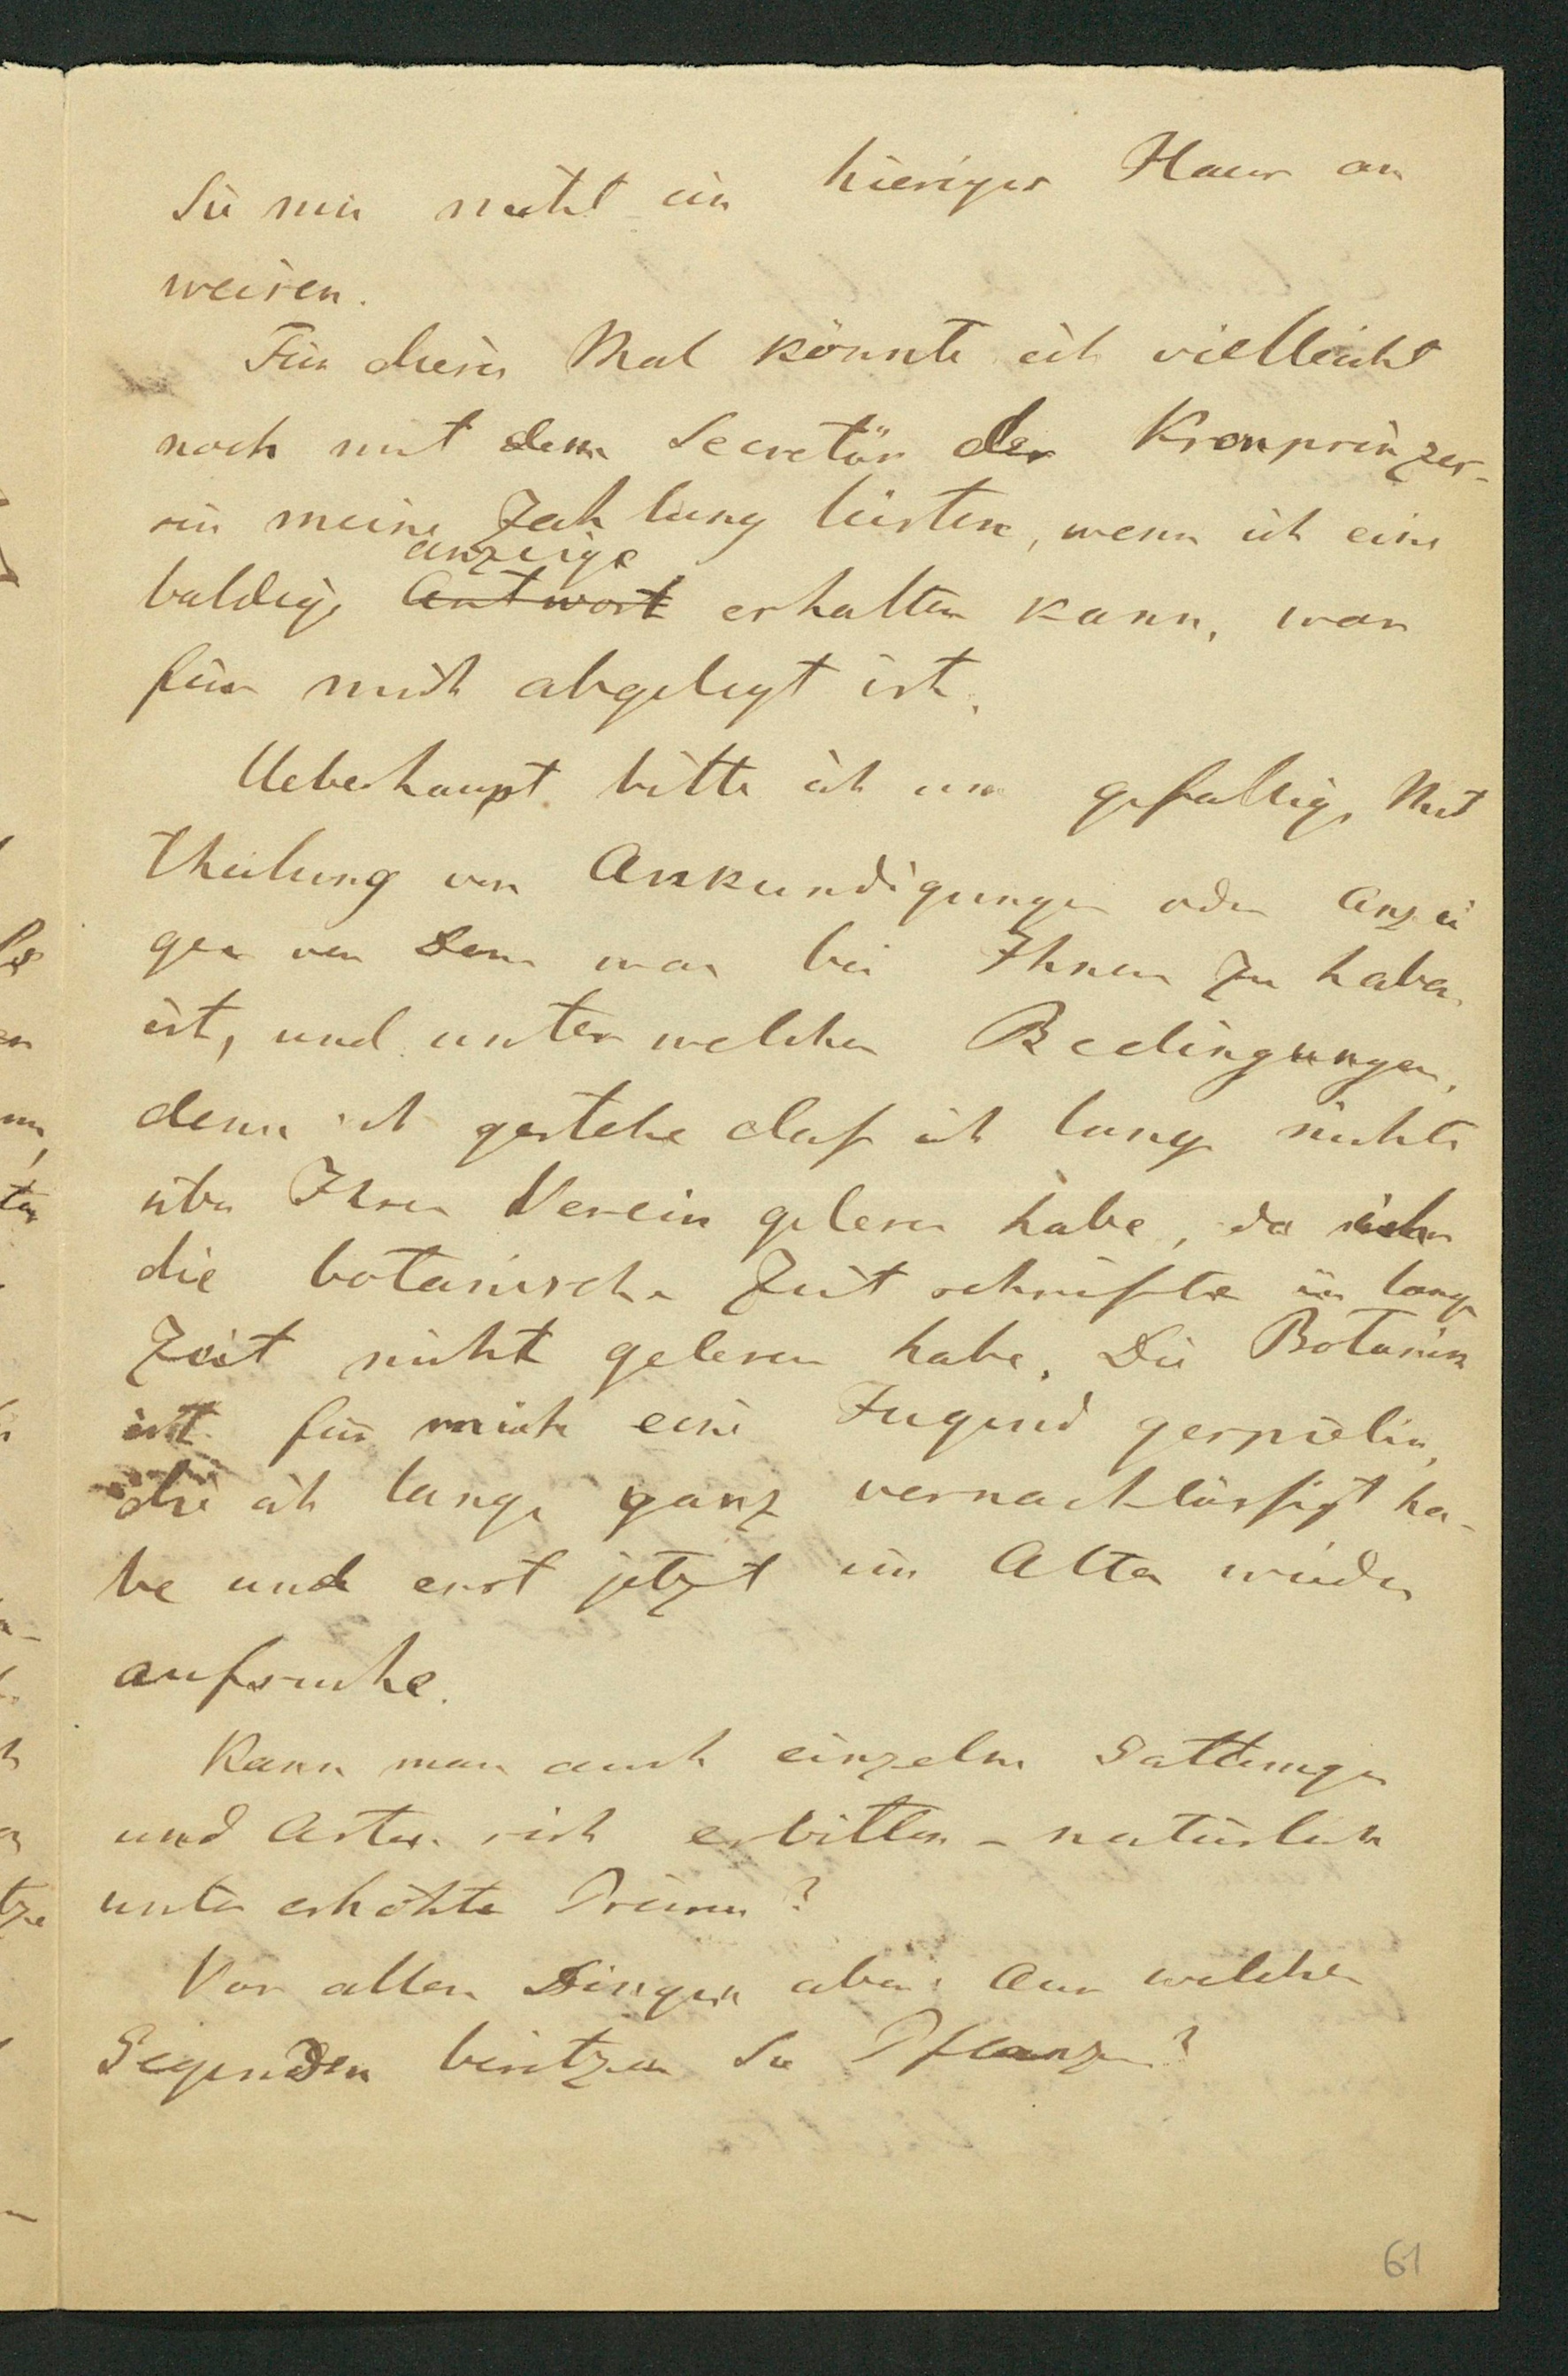 Sie mir nicht ein hiesiges Haus an
weisen.
Für dieses Mal könnte ich vielleicht
noch mit dem Secretär der Kronprinzes-
sin meine Zahlung leisten, wenn ich eine
anzeige
baldige Antwort erhalten kann, was
für mich abgelegt ist.
Ueberhaupt bitte ich um gefällige Mit
theilung von Ankundigungen oder Anzei
gen von dem was bei Ihnen zu haben
ist, und unter welchen Bedingungen,
denn ich gestehe daß ich lange nichts
über Ihren Verein gelesen habe, da ich
die botanischen Zeitschriften in langer
Zeit nicht gelesen habe. Die Botanik
ist für mich eine Jugend gespielin,
die ich lange ganz vernachlässigt ha-
be und erst jetzt im Alter wieder
aufsuche.
Kann man auch einzelne Gattungen
und Arten sich erbitten – natürlich
unter erhöhten Preisen?
Vor allen Dingen aber: Aus welchen
Gegenden besitzen Sie Pflanzen?
61